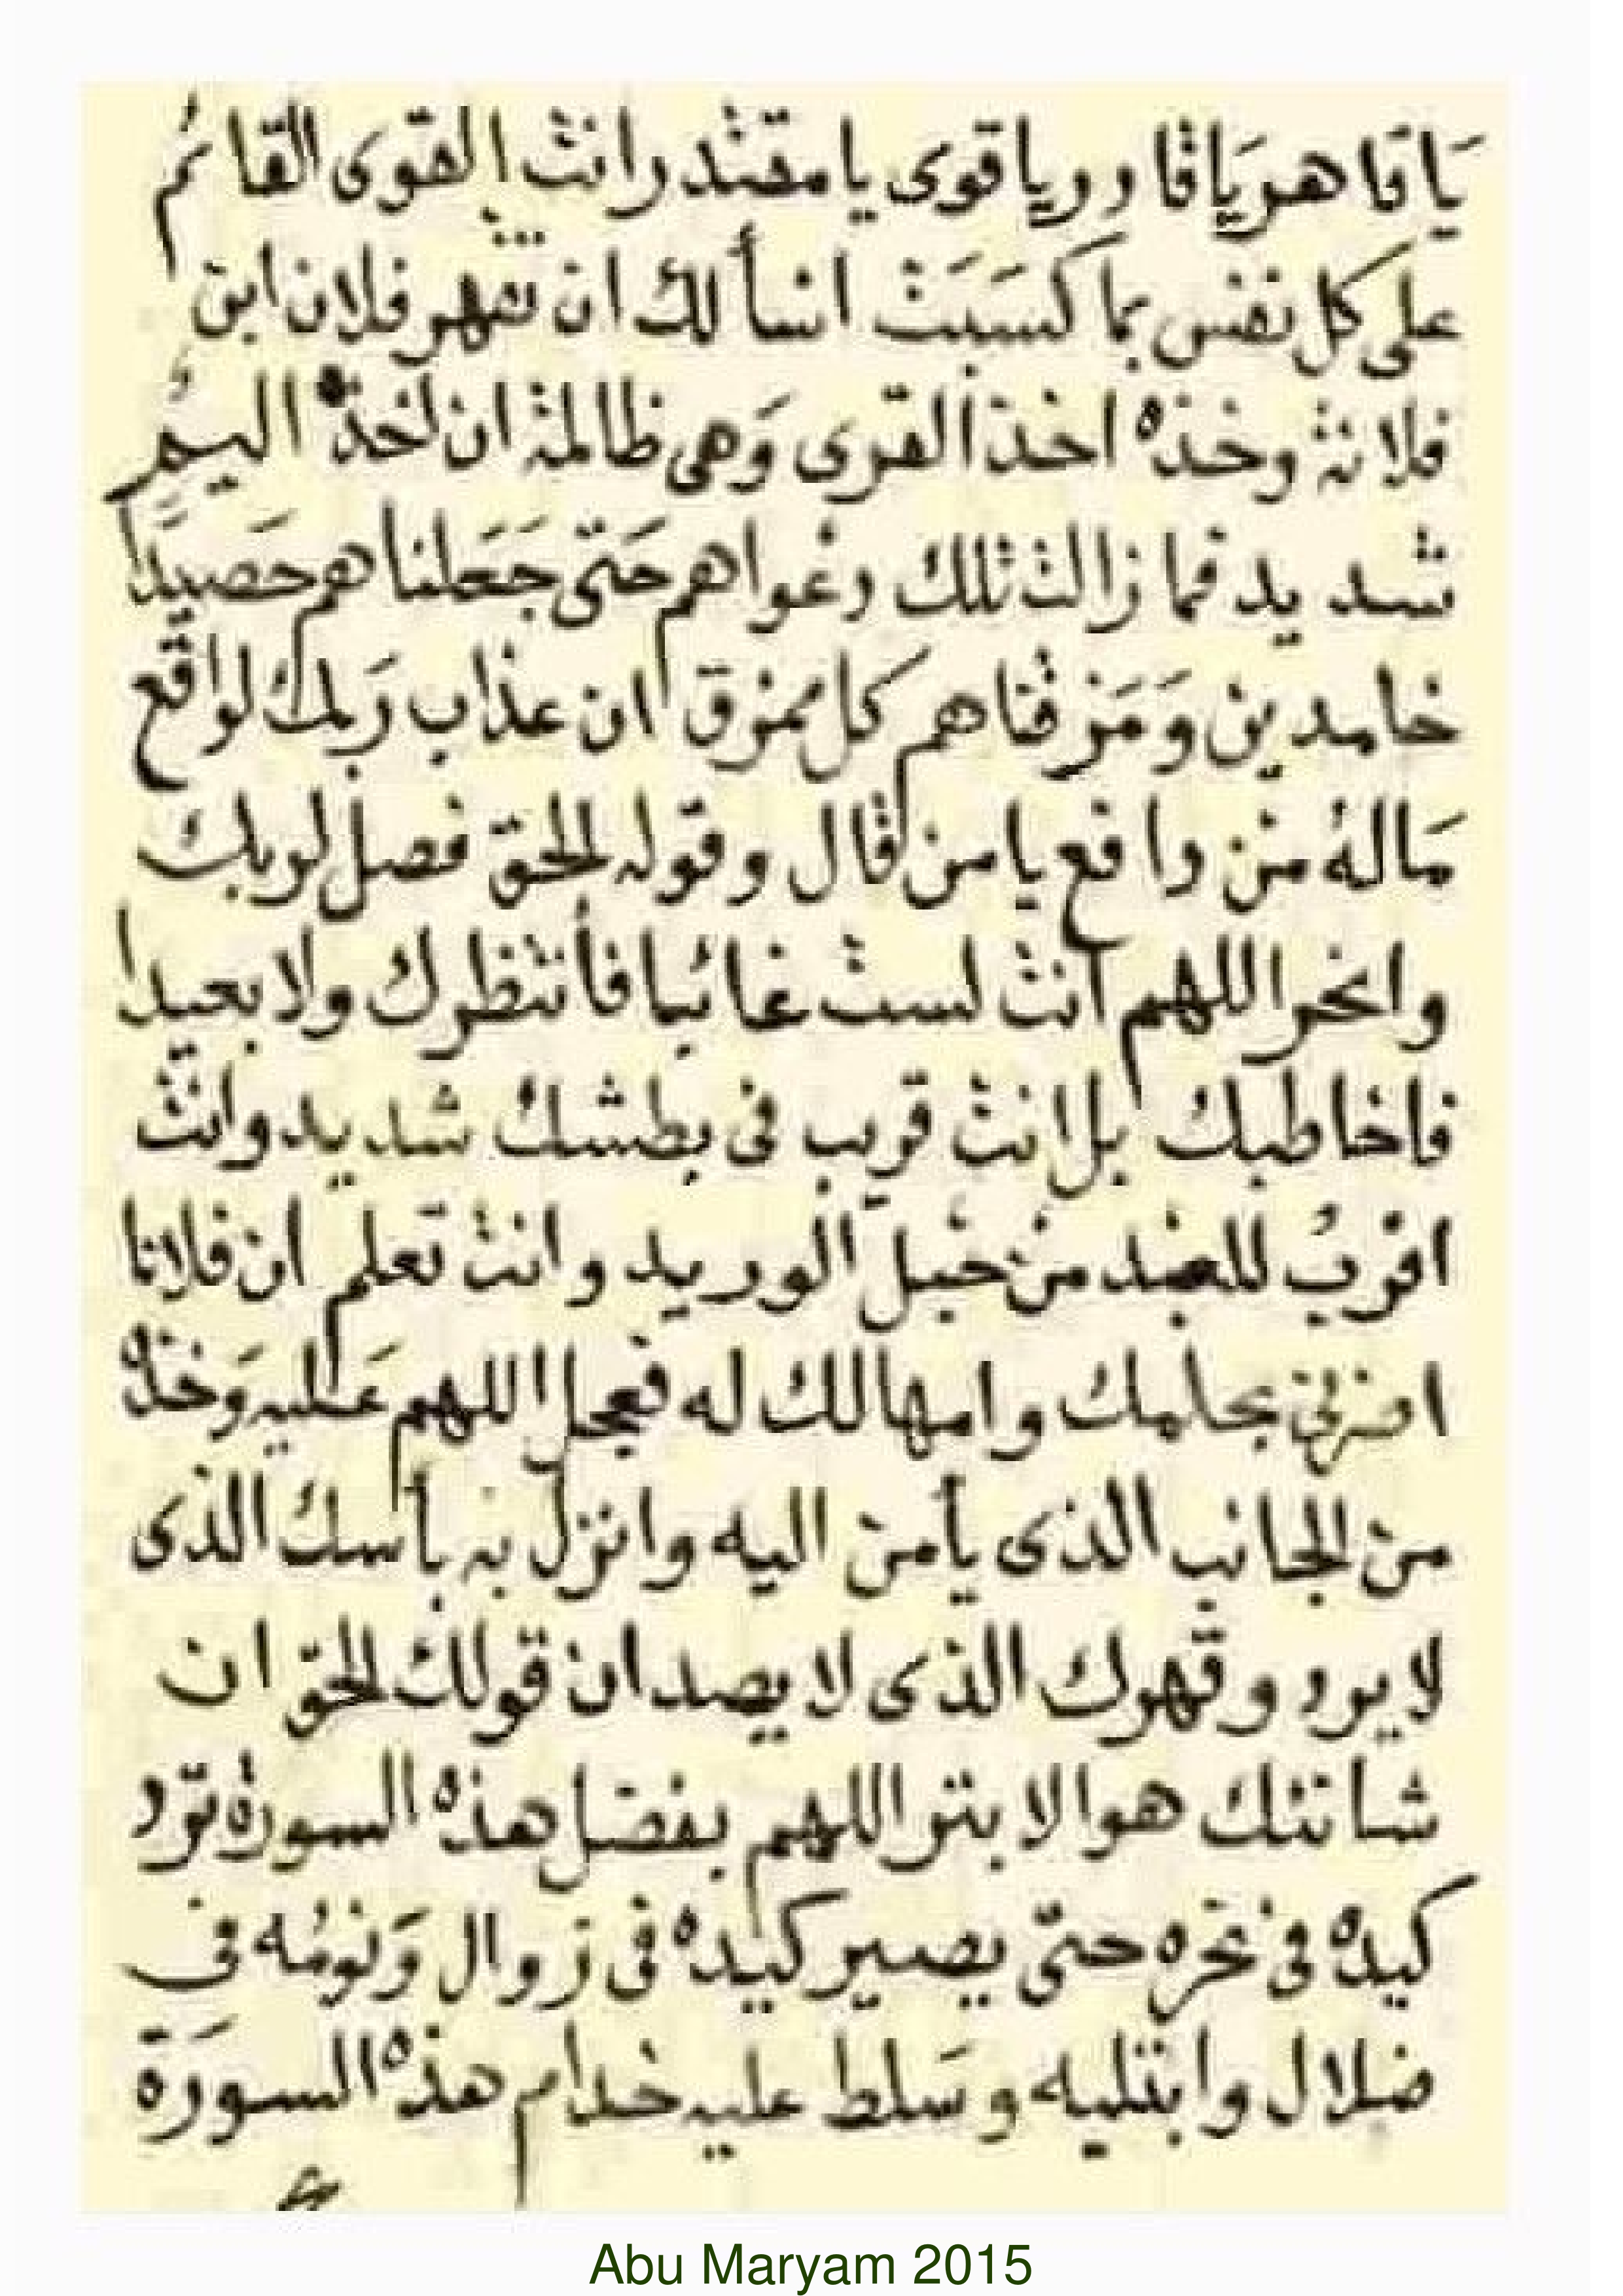 يَا قاهر يَا قادر يا قوى يا مقتدر انت القوى القائم
على كل نفس بما كسَبَت اسألك ان تقهر فلان ابن
فلانة وخذه اخذ القرى وَهى ظالمة ان اخذه اليم
شديد فما زالت تلك دعواهم حَتى جَعَلناهم حَصيداً
خامدين وَمَزقناهم كل ممزق ان عذاب رَبك لواقع
مَاله من دافع يا من قال وقوله الحق فصل لربك
وانحر اللهم انت لست غائبا فأنتظرك ولا بعيدا
فاخاطبك بل انت قريب فى بطشك شديد وانت
اقربُ للعبد من حبل الوريد وانت تعلم ان فلانا
بحلمك وامهالك له فعجل اللهم عَليه وَخذه
من الجانب الذى يأمن اليه وانزل به بأسك الذى
لا يرد وقهرك الذى لا يصد ان قولك الحق ان
شانئك هو الابتر اللهم بفضل هذه السورة ترد
كيده فى نحره حتى يصير كيده فى زوال وَنومُه فى
ضلال وابتليه وسَلط عليه خدام هذه السورَة
Abu Maryam 2015